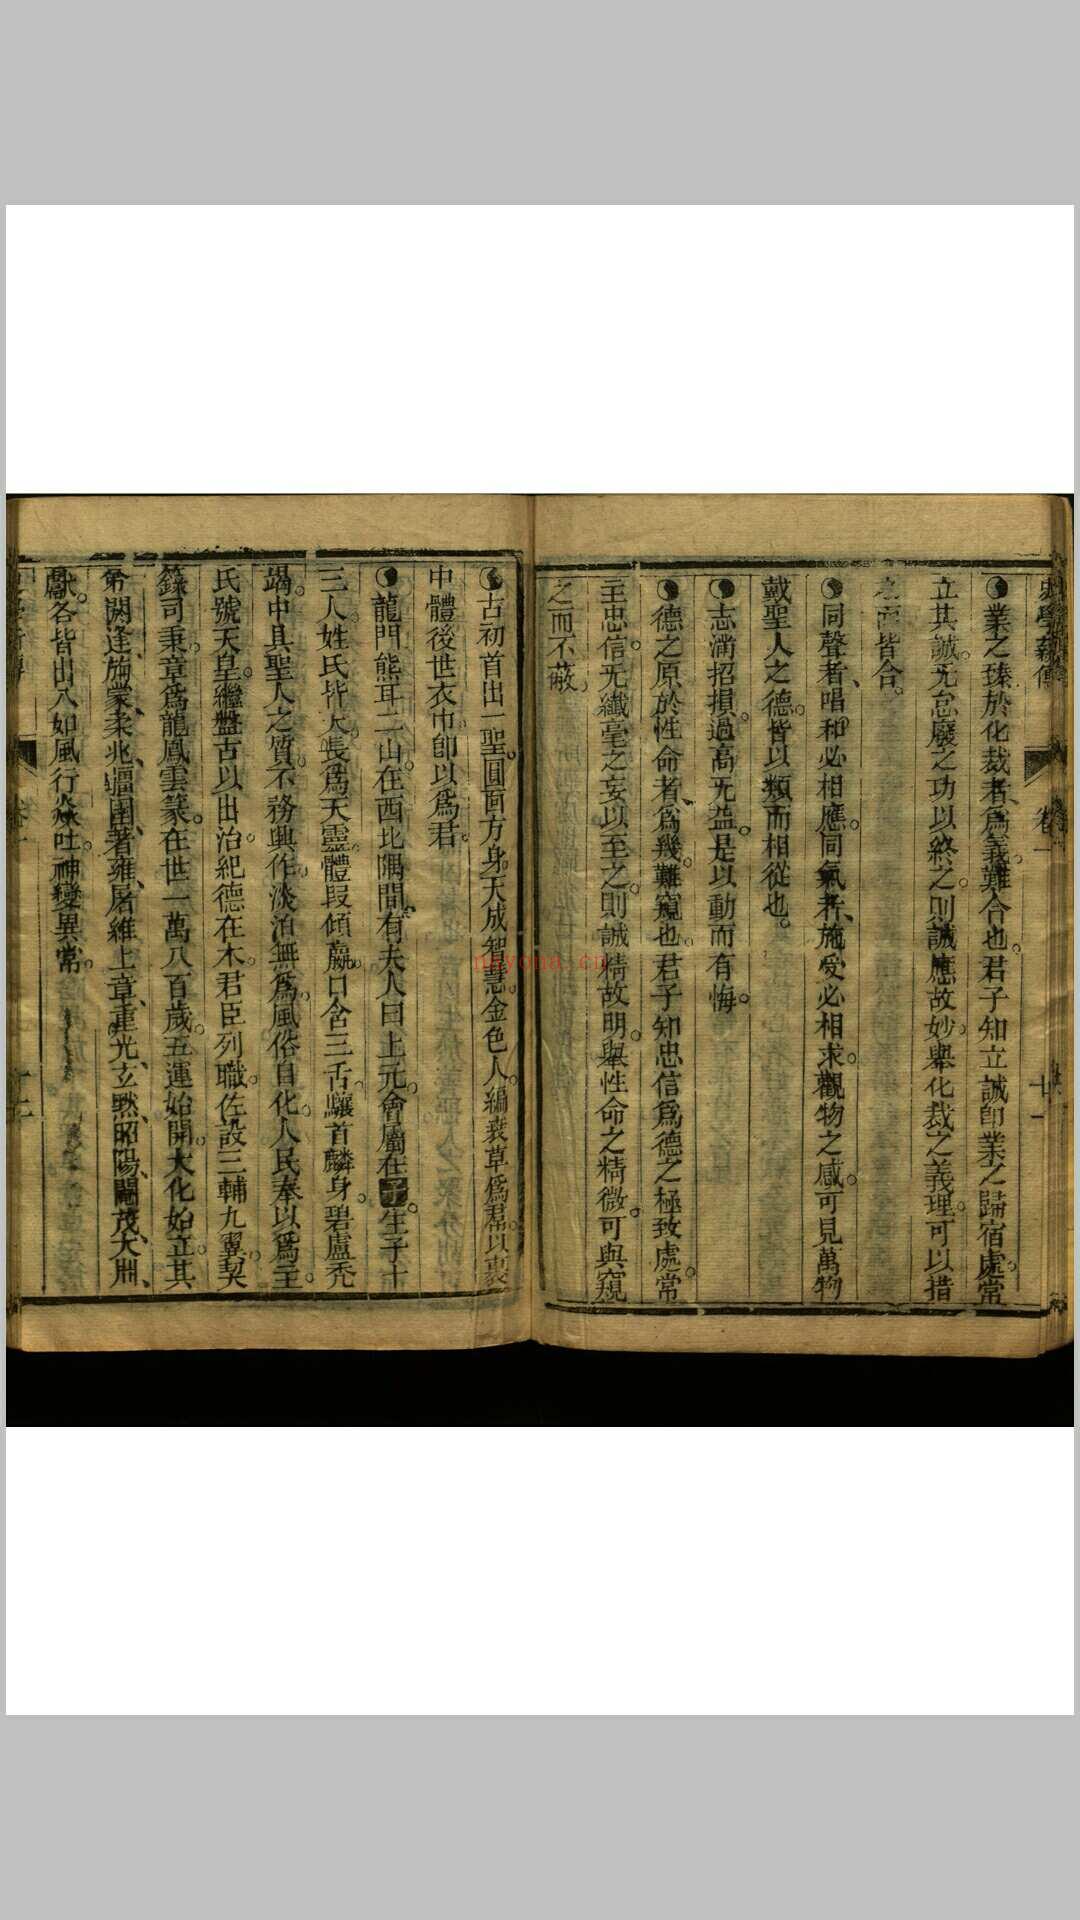 史學新傳 卷一
業之臻於化裁者、爲義難合也。君子知立誠卽業之歸宿處。常
立其誠。无怠廢之功以終之。則誠應故妙。舉化裁之義理。可以措
之而皆合。
同聲者、唱和必相應。同氣者、施受必相求。觀物之感。可見萬物
戴聖人之德。皆以類而相從也。
志滿招損。過高无益。是以動而有悔。
德之原於性命者、爲幾難窺也。君子知忠信爲德之極致處。常
主忠信。无纖毫之妄以至之。則誠精故明。舉性命之精微。可與窺
之而不蔽。
古初首出一聖。圓面方身。天成智慧。金色人。編蓑草爲帬。以裹
中體。後世衣巾。卽以爲君。
龍門熊耳二山。在西北隅間。有夫人曰上元。會屬在子。生子十
三人。姓氏皆大。長爲天靈。體叚傾羸。口含三舌。驤首麟身。碧盧禿
竭。中具聖人之質。不務興作。淡泊無爲。風俗自化。人民奉以爲主。
氏號天皇。繼盤古以出治。紀德在木。君臣列職。佐設三輔九翼。契
籙司秉。章爲龍鳳雲篆。在世一萬八百歲。五運始開。大化始立。其
弟閼逢、旃蒙、柔兆、疆圉、著雍、屠維、上章、重光、玄黙、昭陽、閹茂、大
獻。各皆出入如風行。焱吐。神變異常。
nayona.cn